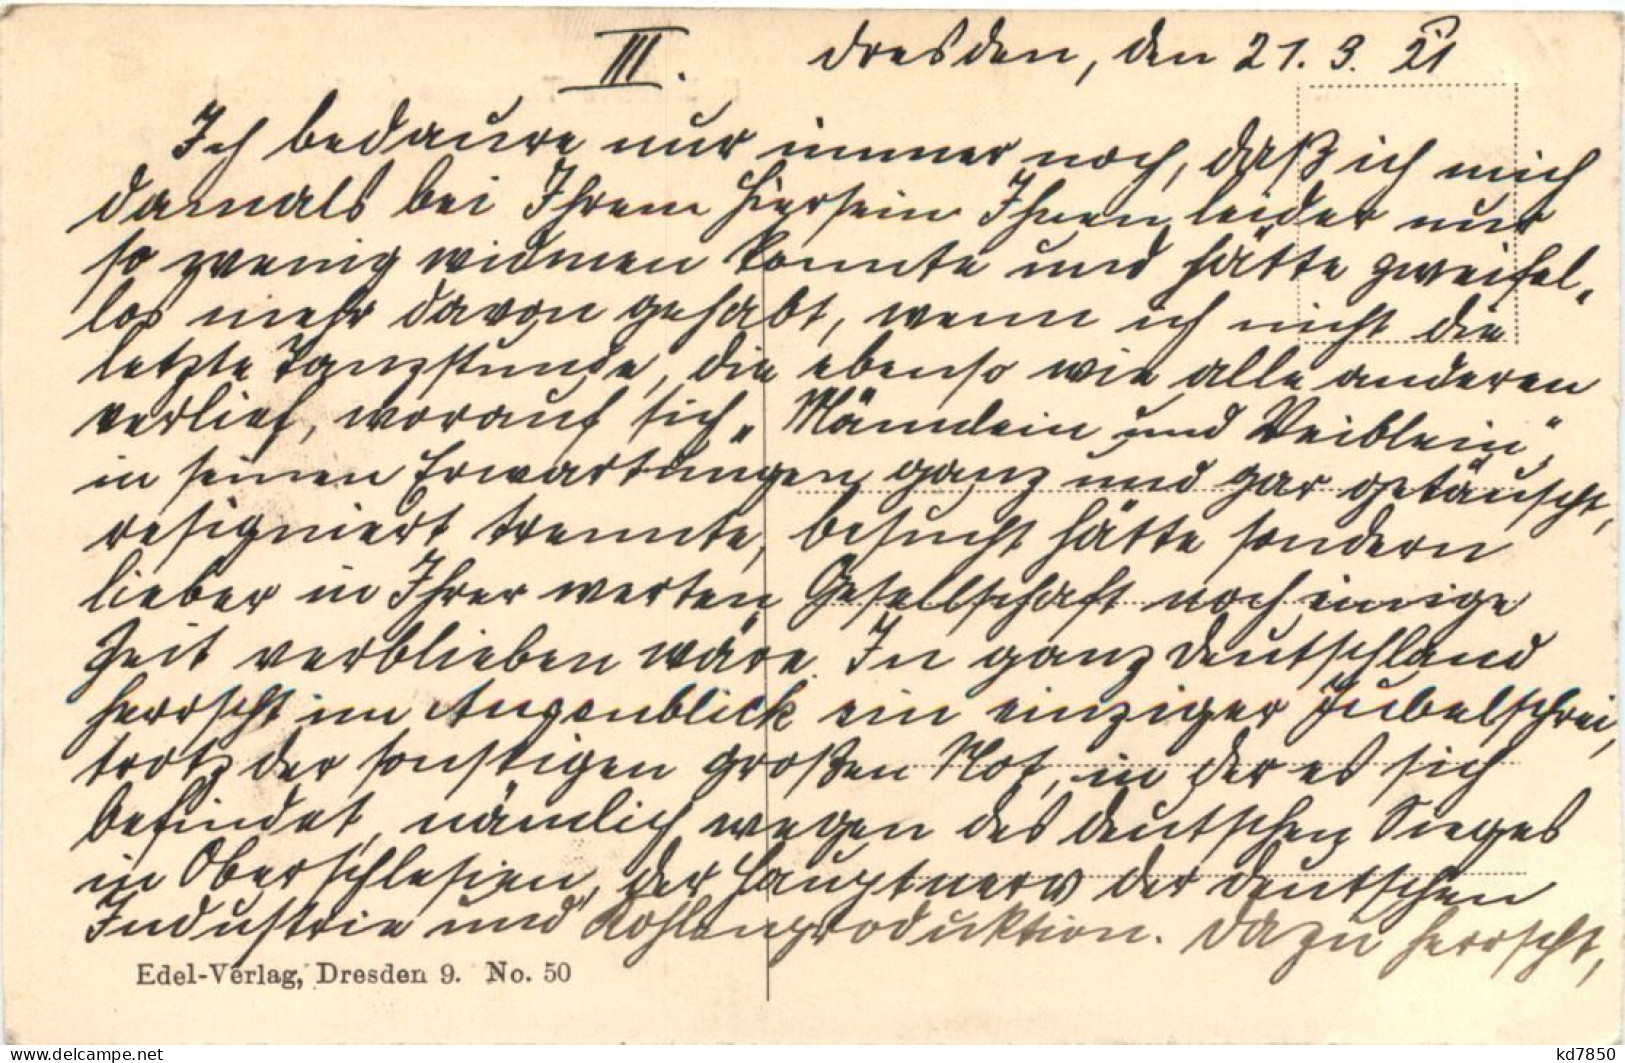 III. Dresden, den 21. 3. 21
Ich bedaure nur immer noch, daß ich mich
damals bei Ihrem Hiersein Ihnen leider nur
so wenig widmen konnte und hätte zweifel-
los mehr davon gehabt, wenn ich nicht die
letzte Tanzstunde, die ebenso wie alle anderen
verlief, worauf sich „Männlein und Weiblein",
in seinen Erwartungen ganz und gar getäuscht,
resigniert trennte, besucht hätte sondern
lieber in Ihrer werten Gesellschaft noch einige
Zeit verblieben wäre. In ganz Deutschland
herrscht im Augenblick ein einziger Jubelschrei,
trotz der sonstigen großen Not, in der es sich
befindet, nämlich wegen des deutschen Sieges
in Oberschlesien, der Hauptnerv der deutschen
Industrie und Kohlenproduktion. Dazu herrscht,
Edel-Verlag, Dresden 9. No. 50
www.delcampe.net
kd7850